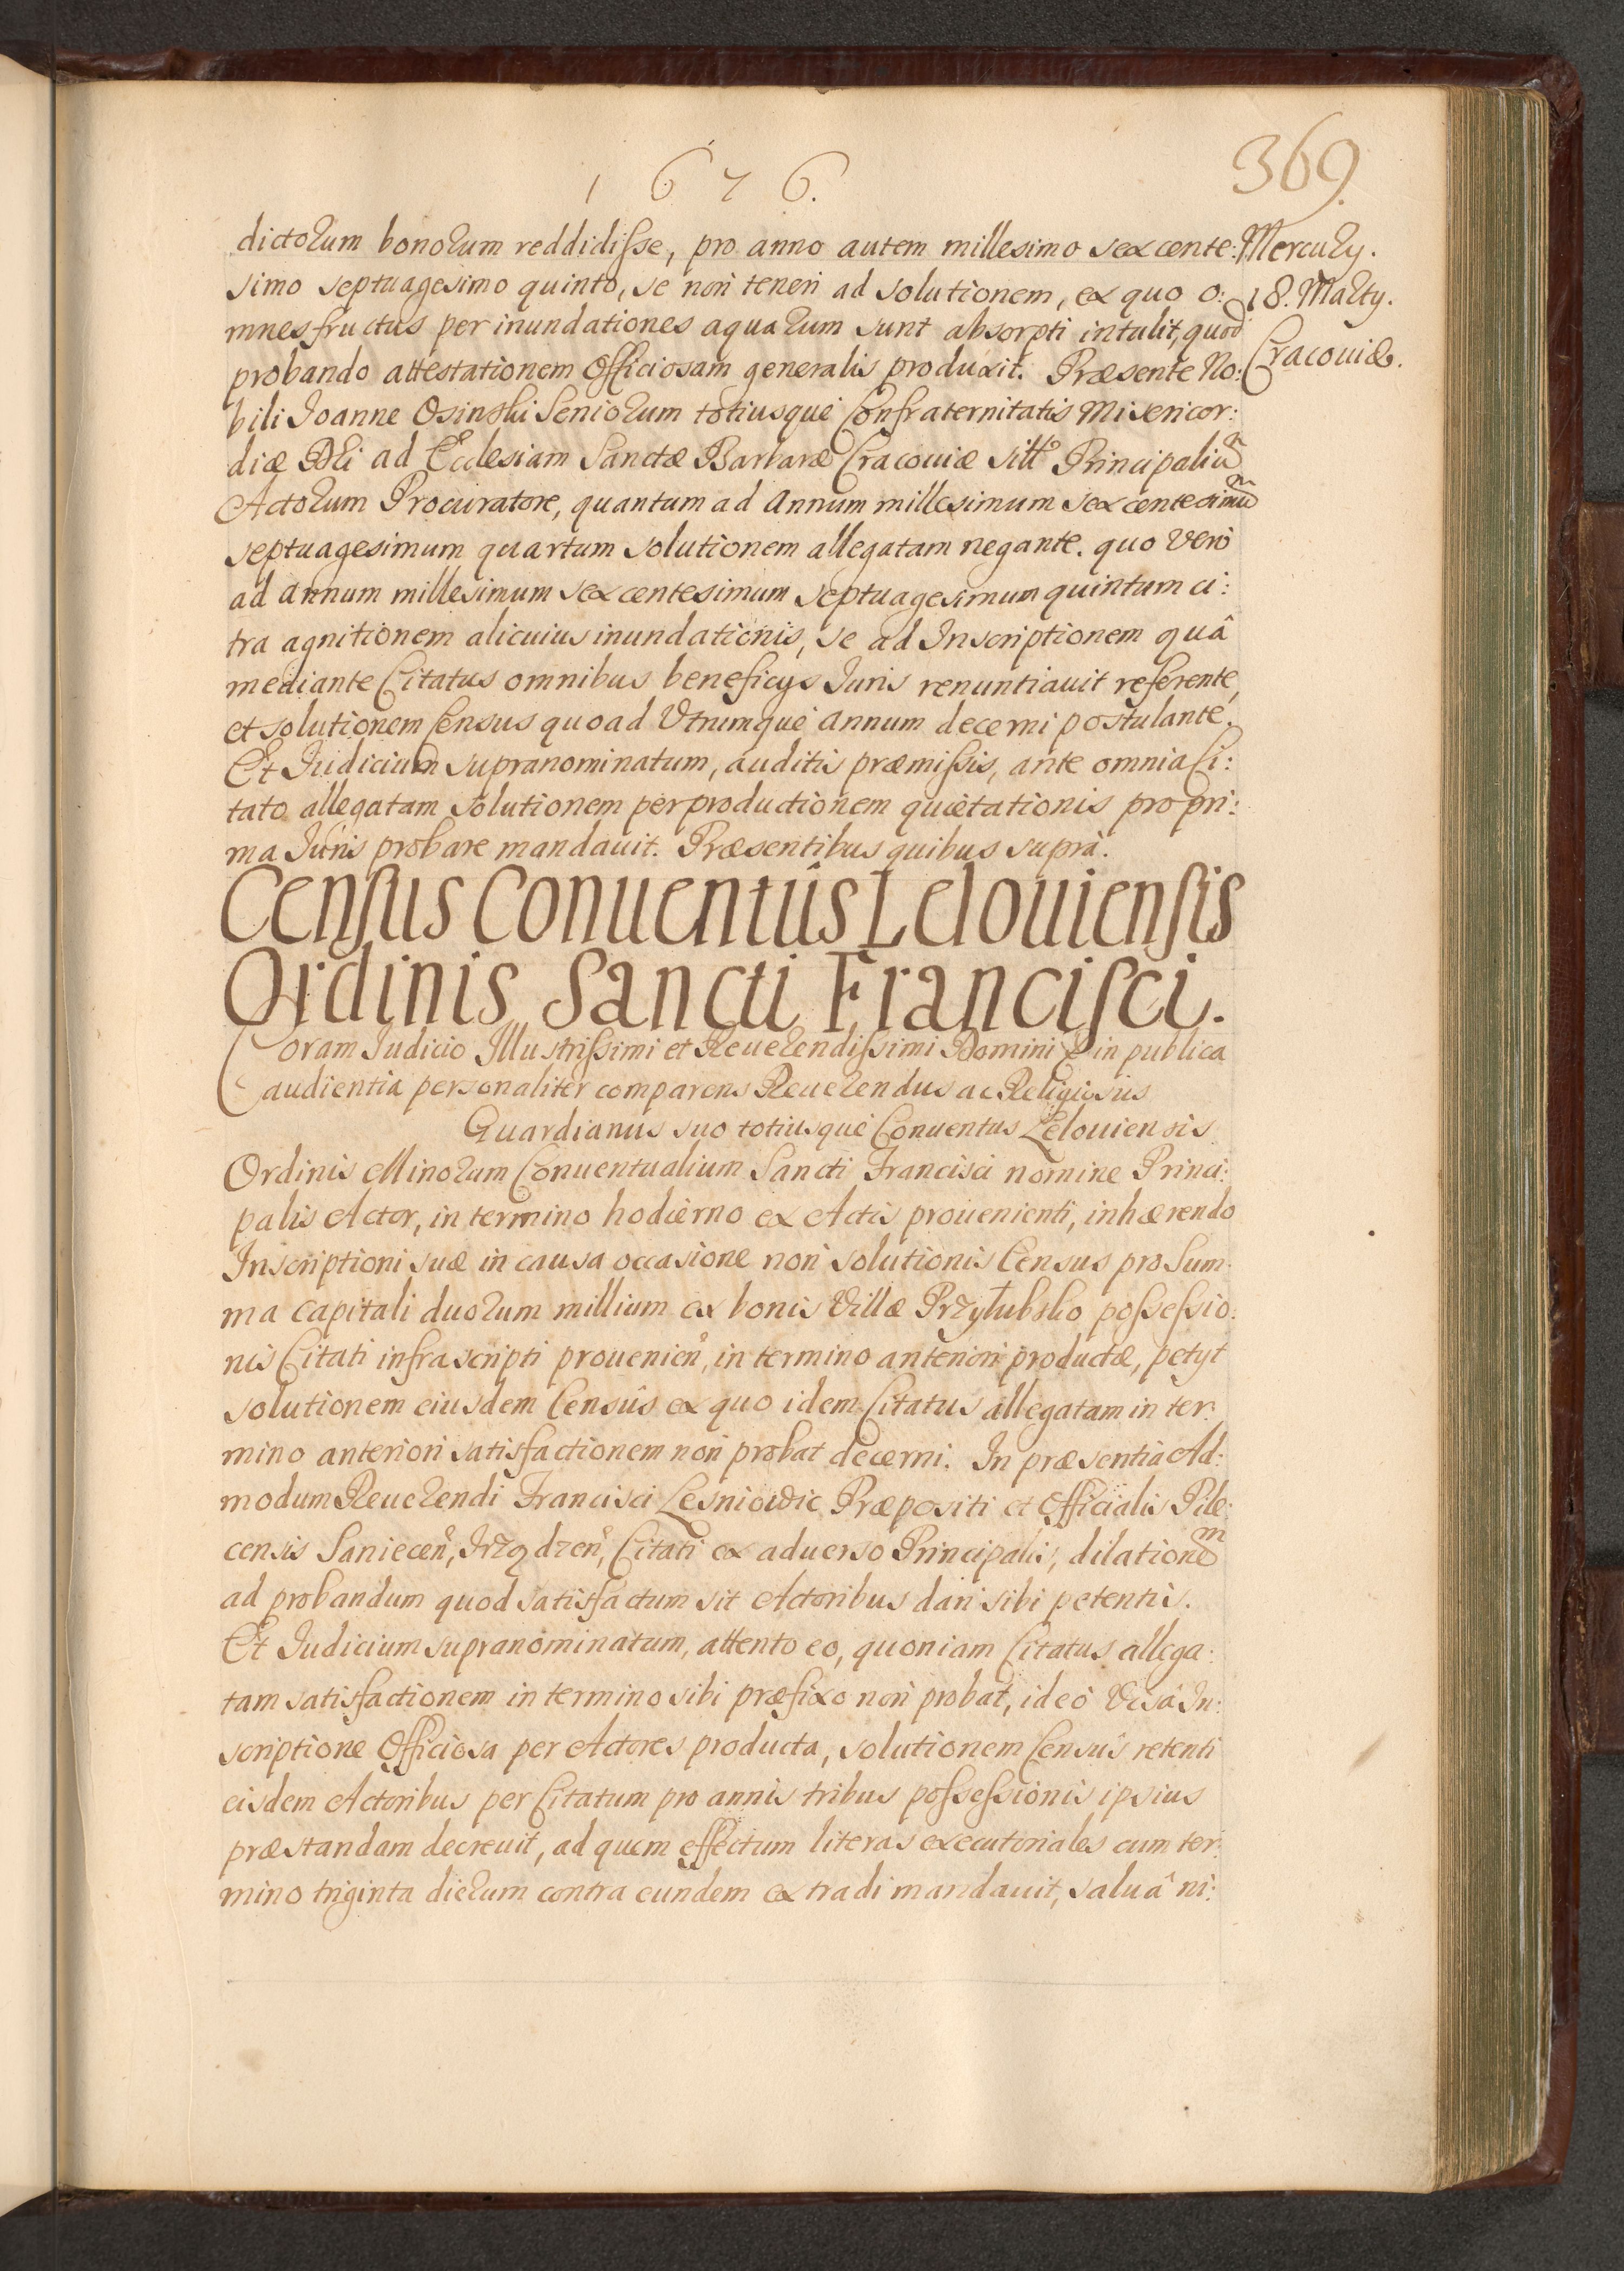 1676.
369.
dictorum bonorum reddidisse, pro anno autem millesimo sexcente:
simo septuagesimo quinto, se non teneri ad solutionem, ex quo o:
mnes fructus per inundationes aquarum sunt absorpti intulit, quod
probando attestationem Officiosam generalis produxit. Præsente No:
bili Ioanne Osinski Seniorum totiusque Confraternitatis Misericor:
diæ Dei ad Ecclesiam Sanctæ Barbaræ Cracouiæ sitt Principaliũ
Actorum Procuratore, quantum ad Annum millesimum sexcentesimũ
septuagesimum quartum solutionem allegatam negante. quo verò
ad Annum millesimum sexcentesimum septuagesimum quintum ci:
tra agnitionem alicuius inundationis, se ad Inscriptionem quâ
mediante Citatus omnibus beneficys Iuris renuntiauit referente,
et solutionem Census quoad Vtrumque Annum decerni postulante.
Et Iudicium supranominatum, auditis præmissis, ante omnia Ci:
tato allegatam solutionem per productionem quietationis pro pri:
ma Iuris probare mandauit. Præsentibus quibus suprà.
Mercury.
18. Marty.
Cracouiæ.
Census Conuentûs Lelouiensis
Ordinis Sancti Francisci.
Coram Iudicio Illustrissimi et Reuerendissimi Domini in publica
audientia personaliter comparens Reuerendus ac Religiosus
Guardianus suo totiusque Conuentus Lelouiensis
Ordinis Minorum Conuentualium Sancti Francisci nomine Princi:
palis Actor, in termino hodierno ex Actis prouenienti, inhærendo
Inscriptioni suæ in causa occasione non solutionis Census pro Sum:
ma Capitali duorum millium ex bonis Villæ Przyłubsko possessio:
nis Citati infrascripti prouenien, in termino anteriori productæ, petyt
solutionem eiusdem Censûs ex quo idem Citatus allegatam in ter:
mino anteriori satisfactionem non probat decerni. In præsentia Ad:
modum Reuerendi Francisci Lesniowic Præpositi et Officialis Pile:
censis Saniecen, Irządzen, Citati ex aduerso Principalis, dilationẽ
ad probandum quod satisfactum sit Actoribus dari sibi petentis.
Et Iudicium supranominatum, attento eo, quoniam Citatus allega:
tam satisfactionem in termino sibi præfixo non probat, ideò Visâ In:
scriptione Officiosa per Actores producta, solutionem Censûs retenti
eisdem Actoribus per Citatum pro annis tribus possessionis ipsius
præstandam decreuit, ad quem effectum literas executoriales cum ter:
mino triginta dierum contra eundem extradi mandauit, saluâ ni: